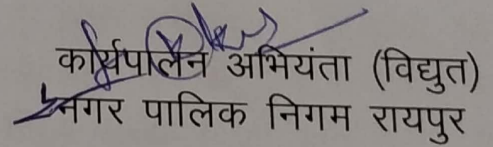 कार्यपालन अभियंता (विद्युत)
नगर पालिक निगम रायपुर